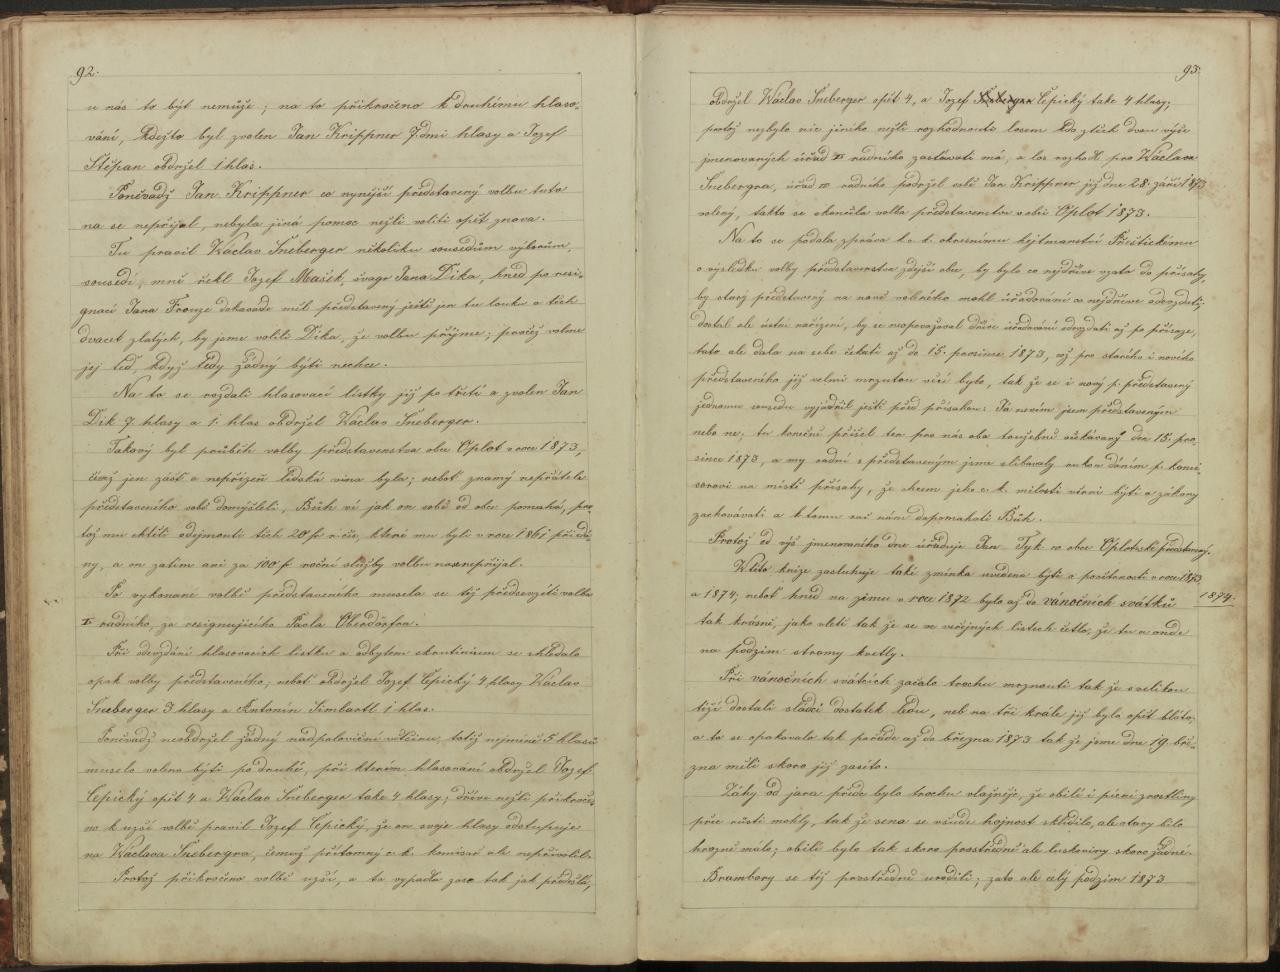 92.
u nás to být nemůže; na to přikročeno k druhému hlaso-
vání, kdežto byl zvolen Jan Krippner 7dmi hlasy a Jozef
Štěpan obdržel 1 hlas.
Poněvadž Jan Krippner co nynější představený volbu tuto
na se nepřijal, nebyla jiná pomoc nežli voliti opět znova.
Tu pravil Václav Šneberger několika sousedům výborům,
sousedé, mně řekl Jozef Mašek, švagr Jana Dika, hned po resi-
gnaci Jana Fronze dokavade měl představený ještě jen tu louku a těch
dvacet zlatých, by jsme volili Dika, že volbu přijme; pročež volme
jej teď, když tedy žádný býti nechce.
Na to se rozdali hlasovací lístky již po třetí a zvolen Jan
Dik 7. hlasy a 1. hlas obdržel Václav Šneberger.
Takový byl průběh volby představenstva obce Oplot v roce 1873,
čehož jen zášť a nepřízeň lidská vina byla; neboť znamý nepřátelé
představeného sobě domýšleli, Bůh ví jak on sobě od obce pomahá, pro-
tož mu chtěli odejmouti těch 20 fr r. čís, které mu byli v roce 1861 přidá-
ny, a on zatím ani za 100 fr roční služby volbu na se nepřijal.
Po vykonané volbě představeného musela se též předsevzíti volba
II radního, za resignujícího Pavla Oberdörfra.
Při devzdání hlasovacích lístku a odbytem skrutinium se shledalo
opak volby představeného; neboť obdržel Jozef Čepický 4 hlasy Václav
Šneberger 3 hlasy a Antonín Timbartl 1 hlas.
Poněvadž neobdržel žádný nadpoloviční většinu, totiž nejméně 5 hlasů
muselo voleno býti po druhé, při kterém hlasování obdržel Jozef
Čepický opět 4 a Václav Šneberger take 4 hlasy; dříve nežli přikroče-
no k užší volbě pravil Jozef Čepický, že on svoje hlasy odstupuje
na Václava Šnebergra, čemuž přítomný c. k. komisař ale nepřivolil.
Protož přikročeno volbě užší, a ta vypadla zase tak jak předešlá,
93.
obdržel Václav Šneberger opět 4, a Jozef Čepický take 4 hlasy;
protož nezbylo nic jiného nežli rozhodnouti losem kdo z těch dvou výše
jmenovaných úřad II radního zastávati má, a los rozhodl pro Václava
Šnebergra, úřad III radního podržel sobě Jan Krippner již dne 28. září 1873
volený, takto se skončila volba představenstva v obci Oplot 1873.
Na to se podala zpráva k. c. k. okresnímu hejtmanství Přeštickému
o výsledku volby představenstva zdejší obce, by bylo co nejdříve vzato do přísahy,
by starý představený na nově voleného mohl úřadování co nejdříve odevzdati;
dostal ale ústní nařízení, by se neopovažoval dříve úřadování odevzdati až po přísaze,
tato ale dala na sebe čekati až do 15. prosince 1873, což pro starého i nového
představeného již velmi mrzutou věcí bylo, tak že se i nový p. představený
jednomu sousedu vyjádřil ještě před přísahou: Já nevím jsem představeným
nebo ne; tu konečně přišel ten pro nás oba toužebně očekávaný den 15. pro-
since 1873, a my radní s představeným jsme slibovaly rukou dáním p. komi-
sarovi na místě přísahy, že chcem jeho c. k. milosti věrni býti a zákony
zachovávati a k tomu nač nám dopomahati Bůh.
Protož od výš jmenovaného dne úřaduje Jan Tyk co obce Oplotské představený.
V této knize zasluhuje také zminka uvedena býti o povětrnosti v roce 1873
a 1874; neboť hned na zimu v roce 1872 bylo až do vánočních svátků 1874.
tak krásně, jako v letě tak že se ve veřejných listech četlo, že tu a onde
na podzim stromy kvetly.
Při vánočních svátcích začalo trochu mrznouti tak že s velikou
tíží dostali sládci dostatek ledu, neb na tři krále již bylo opět bláto,
a to se opakovalo tak pořáde až do března 1873 tak že jsme dne 19. bře-
zna měli skoro již zaseto.
Záhy od jara přede bylo trochu vlažněji, že obilí i pícní rostliny
přece růsti mohly, tak že sena se všude hojnost sklidilo, ale otavy bylo
hrozně málo; obilí bylo tak skoro prostředně ale luskoviny skoro žádné.
Brambory se též prostředně urodili; zato ale celý podzim 1873